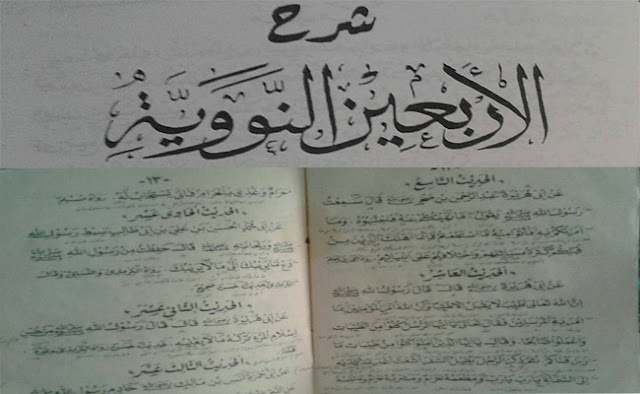 شرح
الأربعين النَّوَوِيَّة
« الحديث التاسع »
عن أبي هريرة عبد الرحمن بن صخر رضي الله عنه قال سمعت
رسول الله ﷺ يقول: ما نهيتكم عنه فاجتنبوه، وما
أمرتكم به فأتوا منه ما استطعتم فإنما أهلك الذين من
قبلكم كثرة مسائلهم واختلافهم على أنبيائهم
« الحديث العاشر »
عن أبي هريرة رضي الله عنه قال قال رسول الله ﷺ
إن الله تعالى طيب لا يقبل إلا طيبا وإن الله أمر المؤمنين بما
أمر به المرسلين فقال تعالى يا أيها الرسل كلوا من الطيبات
واعملوا صالحا، وقال تعالى يا أيها الذين آمنوا كلوا من طيبات ما
رزقناكم ثم ذكر الرجل يطيل السفر أشعث أغبر يمد يديه
إلى السماء يا رب يا رب ومطعمه حرام ومشربه حرام وملبسه
-١٣-
حرام وغذي بالحرام فأنى يستجاب له. رواه مسلم
« الحديث الحادي عشر »
عن أبي محمد الحسن بن علي بن أبي طالب سبط رسول الله
ﷺ وريحانته رضي الله عنه قال حفظت من رسول الله ﷺ
دع ما يريبك إلى ما لا يريبك. رواه الترمذي والنسائي وقال
الترمذي حديث حسن صحيح
« الحديث الثاني عشر »
عن أبي هريرة رضي الله عنه قال قال رسول الله ﷺ من حسن
إسلام المرء تركه ما لا يعنيه. حديث حسن رواه الترمذي وغيره
« الحديث الثالث عشر »
عن أبي حمزة أنس بن مالك رضي الله عنه خادم رسول الله ﷺ